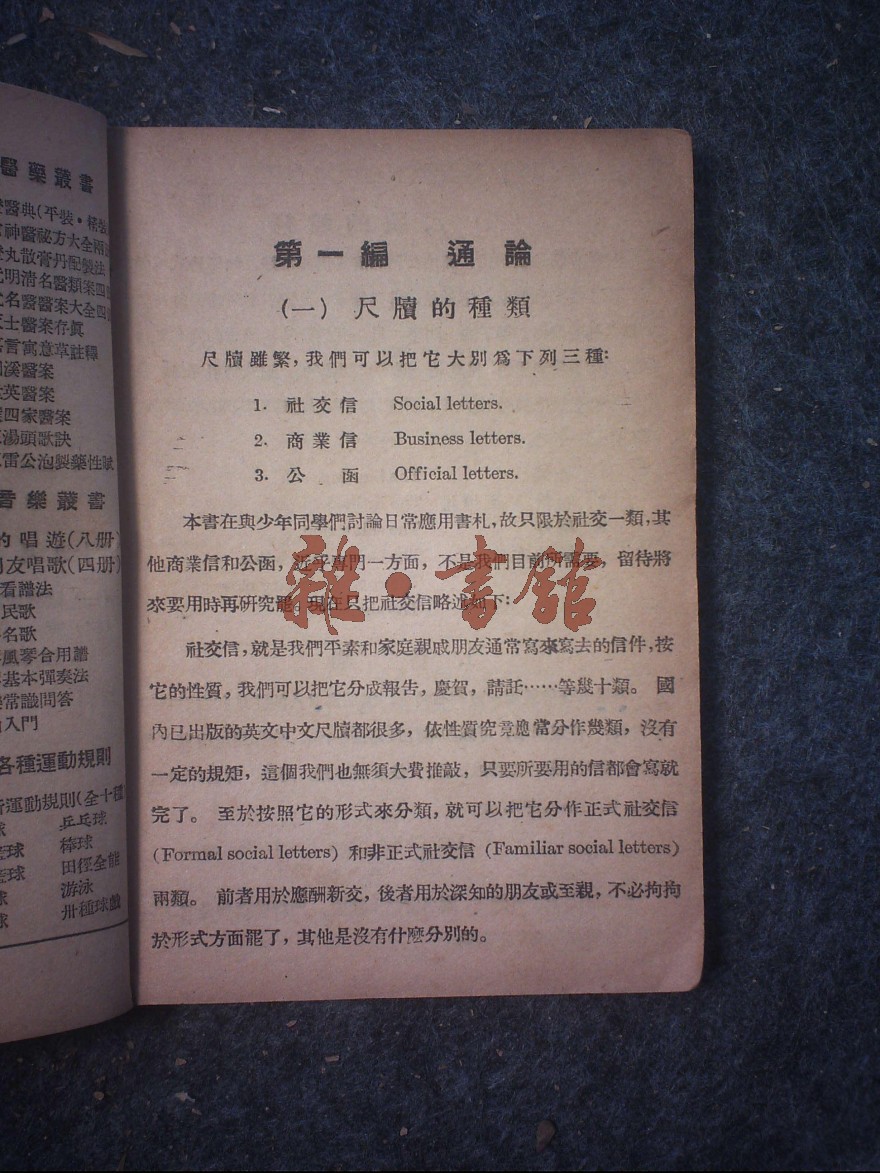 醫藥叢書
醫典(平裝·精裝
神醫秘方大全
丸散膏丹配製法
明清名醫類案四
名醫醫案大全四
士醫案存眞
言寓意草註釋
溪醫案
英醫案
四家醫案
湯頭歌訣
雷公泡製藥性賦
音樂叢書
的唱遊(八册)
友唱歌(四册)
看譜法
民歌
名歌
風琴合用譜
基本彈奏法
常識問答
入門
各種運動規則
運動規則(全十種
球 乒乓球
球 棒球
球 田徑全能
球 游泳
球 卅種球戲
第一編 通論
(一) 尺牘的種類
尺牘雖繁,我們可以把它大別爲下列三種:
1. 社交信 Social letters.
2. 商業信 Business letters.
3. 公函 Official letters.
本書在與少年同學們討論日常應用書札,故只限於社交一類,其
他商業信和公函,近乎專門一方面,不是我們目前所需要,留待將
來要用時再研究罷。現在只把社交信略述如下:
社交信,就是我們平素和家庭親戚朋友通常寫來寫去的信件,按
它的性質,我們可以把它分成報告,慶賀,請託……等幾十類。國
內已出版的英文中文尺牘都很多,依性質究竟應當分作幾類,沒有
一定的規矩,這個我們也無須大費推敲,只要所要用的信都會寫就
完了。至於按照它的形式來分類,就可以把它分作正式社交信
(Formal social letters) 和非正式社交信 (Familiar social letters)
兩類。前者用於應酬新交,後者用於深知的朋友或至親,不必拘拘
於形式方面罷了,其他是沒有什麽分別的。
雜·書館